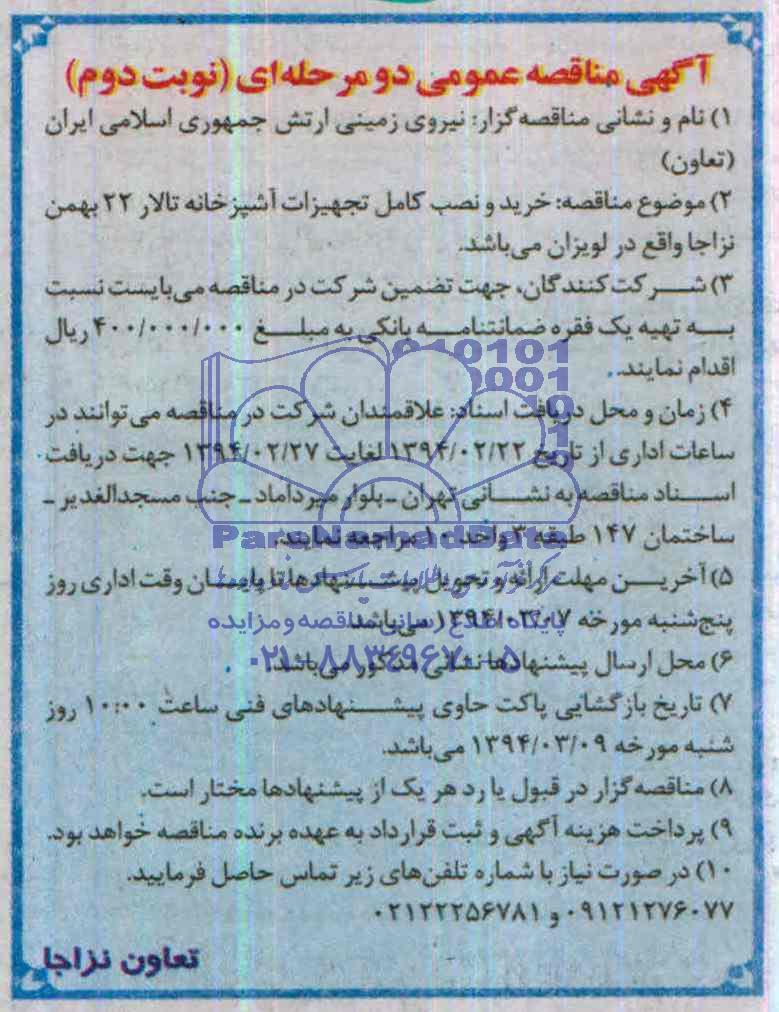 آگهی مناقصه عمومی دو مرحله‌ای (نوبت دوم)
۱) نام و نشانی مناقصه‌گزار: نیروی زمینی ارتش جمهوری اسلامی ایران
(تعاون)
۲) موضوع مناقصه: خرید و نصب کامل تجهیزات آشپزخانه تالار ۲۲ بهمن
نزاجا واقع در لویزان می‌باشد.
۳) شرکت‌کنندگان، جهت تضمین شرکت در مناقصه می‌بایست نسبت
به تهیه یک فقره ضمانتنامه بانکی به مبلغ ۴۰۰/۰۰۰/۰۰۰ ریال
اقدام نمایند.
۴) زمان و محل دریافت اسناد: علاقمندان شرکت در مناقصه می‌توانند در
ساعات اداری از تاریخ ۱۳۹۴/۰۲/۲۲ لغایت ۱۳۹۴/۰۲/۲۷ جهت دریافت
اسناد مناقصه به نشانی تهران - بلوار میرداماد - جنب مسجدالغدیر -
ساختمان ۱۴۷ طبقه ۳ واحد ۱۰ مراجعه نمایند.
ParsNamadData
۵) آخرین مهلت ارائه و تحویل پیشنهادها تا پایان وقت اداری روز
پنج‌شنبه مورخه ۱۳۹۴/۰۳/۰۷ می‌باشد.
پایگاه اطلاع رسانی مناقصه و مزایده
۶) محل ارسال پیشنهادها نشانی مذکور می‌باشد.
۰۲۱-۸۸۳۴۹۶۷۰-۵
۷) تاریخ بازگشایی پاکت حاوی پیشنهادهای فنی ساعت ۱۰:۰۰ روز
شنبه مورخه ۱۳۹۴/۰۳/۰۹ می‌باشد.
۸) مناقصه‌گزار در قبول یا رد هر یک از پیشنهادها مختار است.
۹) پرداخت هزینه آگهی و ثبت قرارداد به عهده برنده مناقصه خواهد بود.
۱۰) در صورت نیاز با شماره تلفن‌های زیر تماس حاصل فرمایید.
۰۹۱۲۱۲۷۶۰۷۷ و ۰۲۱۲۲۲۵۶۷۸۱
تعاون نزاجا